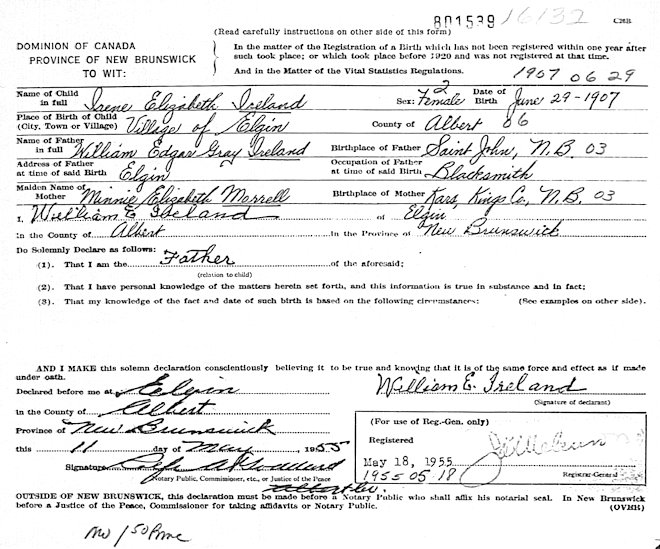 801539 16132 C26B
(Read carefully instructions on other side of this form)
DOMINION OF CANADA
PROVINCE OF NEW BRUNSWICK
TO WIT:
In the matter of the Registration of a Birth which has not been registered within one year after
such took place; or which took place before 1920 and was not registered at that time.
And in the Matter of the Vital Statistics Regulations.
1907 06 29
Name of Child in full Irene Elizabeth Ireland Sex: Female 2 Date of Birth June 29-1907
Place of Birth of Child (City, Town or Village) Village of Elgin County of Albert 06
Name of Father in full William Edgar Gray Ireland Birthplace of Father Saint John, N.B. 03
Address of Father at time of said Birth Elgin Occupation of Father at time of said Birth Blacksmith
Maiden Name of Mother Minnie Elizabeth Morrell Birthplace of Mother Kars, Kings Co, N.B. 03
I, William E Ireland of Elgin
in the County of Albert in the Province of New Brunswick
Do Solemnly Declare as follows:
(1). That I am the Father of the aforesaid;
(relation to child)
(2). That I have personal knowledge of the matters herein set forth, and this information is true in substance and in fact;
(3). That my knowledge of the fact and date of such birth is based on the following circumstances: (See examples on other side).
AND I MAKE this solemn declaration conscientiously believing it to be true and knowing that it is of the same force and effect as if made
under oath.
Declared before me at Elgin
William E. Ireland
(Signature of declarant)
in the County of Albert
Province of New Brunswick
this 11 day of May, 1955
Signature
Notary Public, Commissioner, etc., or Justice of the Peace
(For use of Reg.-Gen. only)
Registered
May 18, 1955
1955 05 18
Registrar-General
OUTSIDE OF NEW BRUNSWICK, this declaration must be made before a Notary Public who shall affix his notarial seal. In New Brunswick
before a Justice of the Peace, Commissioner for taking affidavits or Notary Public.
(OVER)